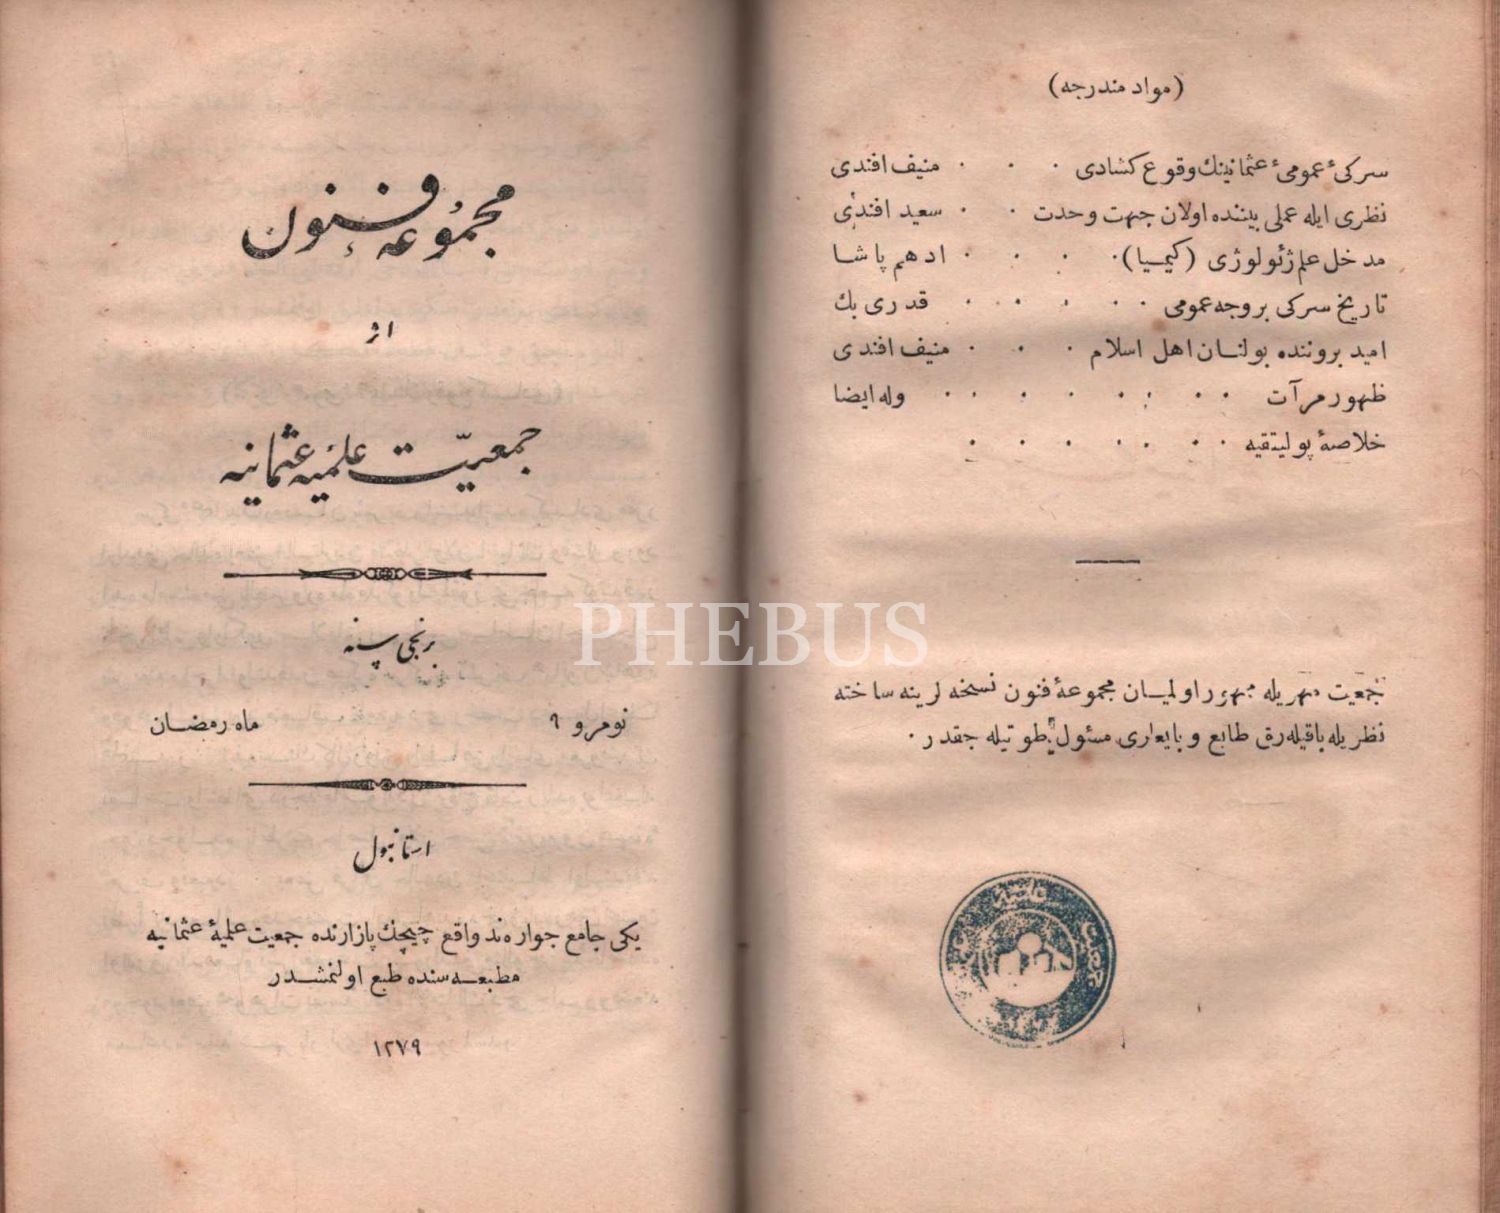 (مواد مندرجه)
سرکیٔ عمومیٔ عثمانینك وقوع کشادی ۰ ۰ ۰ منیف افندی
نظری ایله عملی بیننده اولان جهت وحدت ۰ ۰ سعید افندی
مدخل علم ژئولوژی (کیمیا) ۰ ۰ ۰ ۰ ادهم پاشا
تاریخ سرکی بروجه عمومی ۰ ۰ ۰ ۰ ۰ قدری بك
امید بروننده بولنان اهل اسلام ۰ ۰ ۰ منیف افندی
ظهور مرآت ۰ ۰ ۰ ۰ ۰ ۰ ۰ ۰ وله ایضا
خلاصهٔ پولیتقیه ۰ ۰ ۰ ۰ ۰ ۰
جمعیت مهریله مهور اولمیان مجموعهٔ فنون نسخه لرینه ساخته
نظریله باقیله رق طابع و بایعلری مسئول طوتیله جقدر ۰
مجموعهٔ فنون
اثر
جمعیّت علمیهٔ عثمانیه
برنجی سنه
نومرو ۹ ماه رمضان
استانبول
یکی جامع جوارنده واقع چیچك پازارنده جمعیت علمیهٔ عثمانیه
مطبعه سنده طبع اولنمشدر
۱۲۷۹
PHEBUS